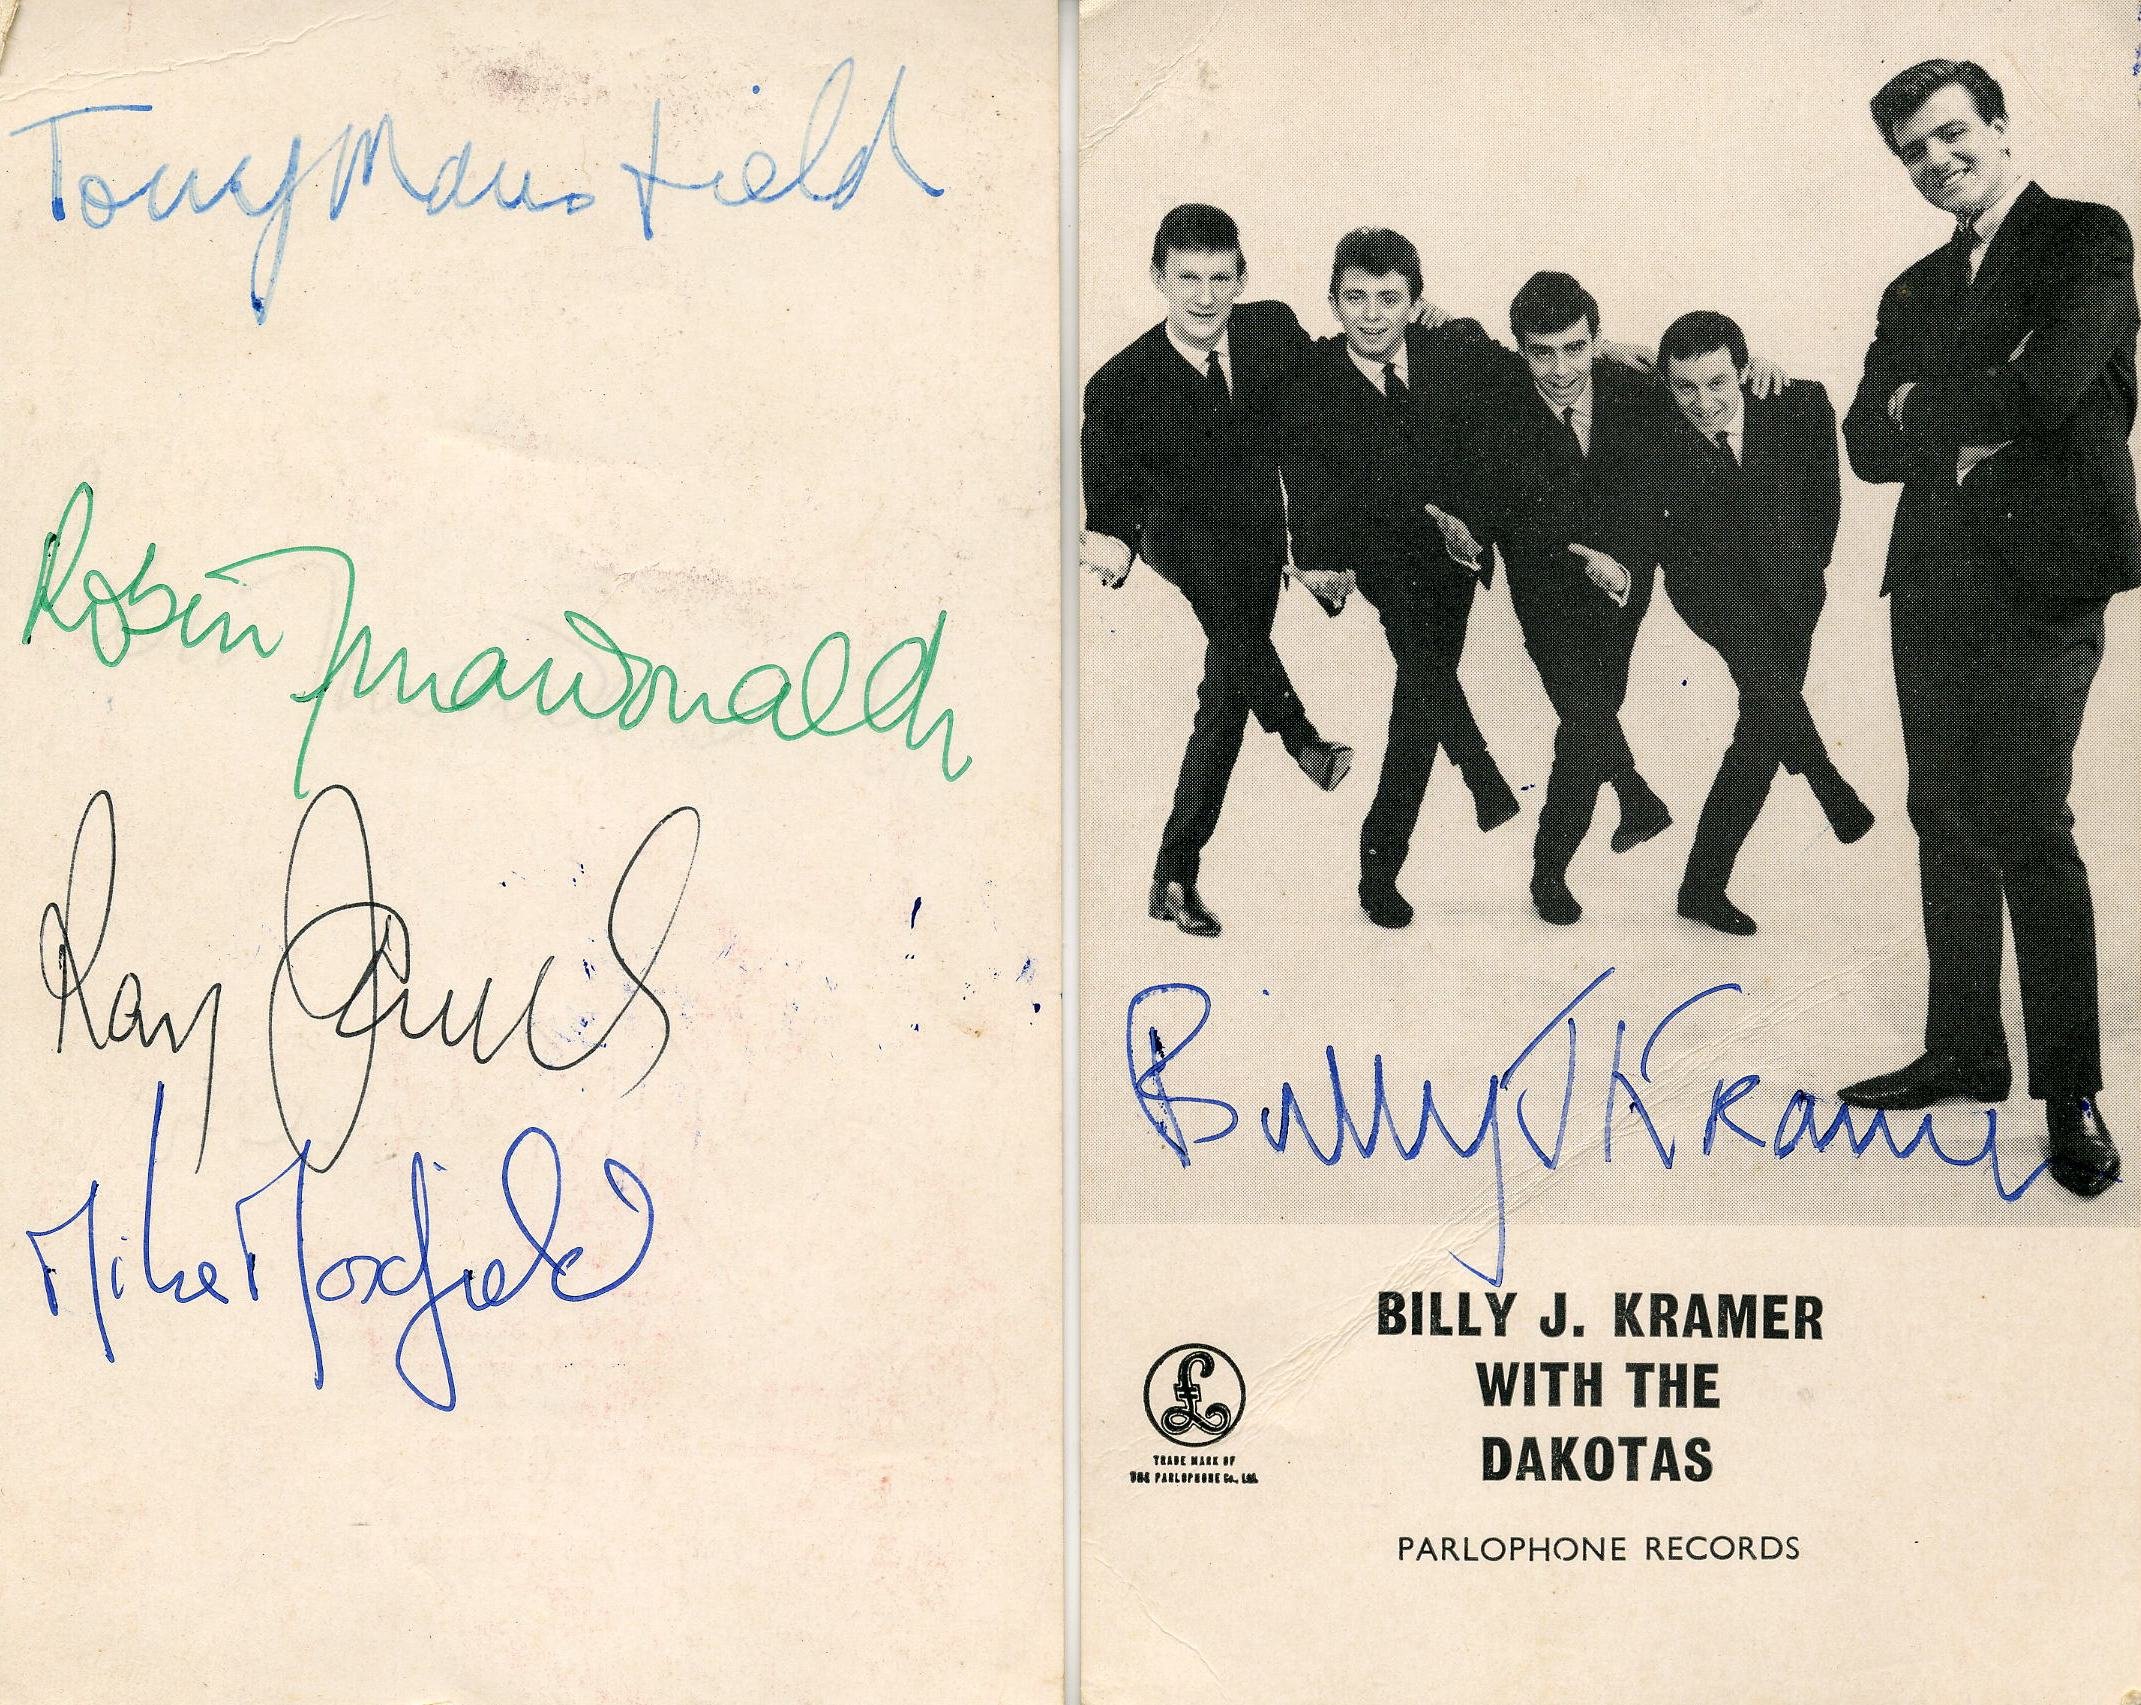 Tony Mansfield
Robin MacDonald
Ray Jones
Mike Maxfield
Billy J Kramer
BILLY J. KRAMER
WITH THE
DAKOTAS
£
TRADE MARK OF
THE PARLOPHONE Co., Ltd.
PARLOPHONE RECORDS